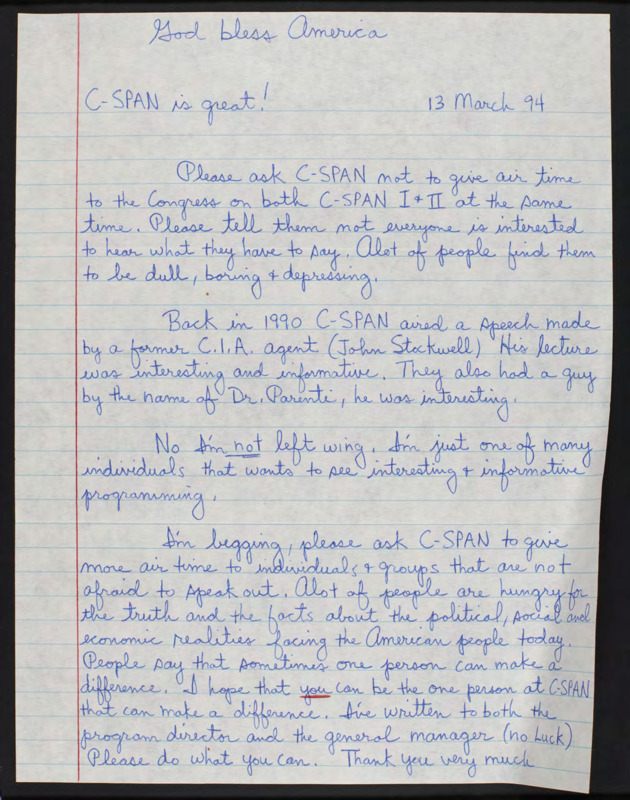 God bless America
C-SPAN is great! 13 March 94
Please ask C-SPAN not to give air time
to the Congress on both C-SPAN I & II at the same
time. Please tell them not everyone is interested
to hear what they have to say. Alot of people find them
to be dull, boring & depressing.
Back in 1990 C-SPAN aired a speech made
by a former C.I.A. agent (John Stockwell) His lecture
was interesting and informative. They also had a guy
by the name of Dr. Parenti, he was interesting.
No I'm not left wing. I'm just one of many
individuals that wants to see interesting & informative
programming.
I'm begging, please ask C-SPAN to give
more air time to individuals & groups that are not
afraid to speak out. Alot of people are hungry for
the truth and the facts about the political, social and
economic realities facing the American people today.
People say that sometimes one person can make a
difference. I hope that you can be the one person at C-SPAN
that can make a difference. I've written to both the
program director and the general manager (no luck)
Please do what you can. Thank you very much